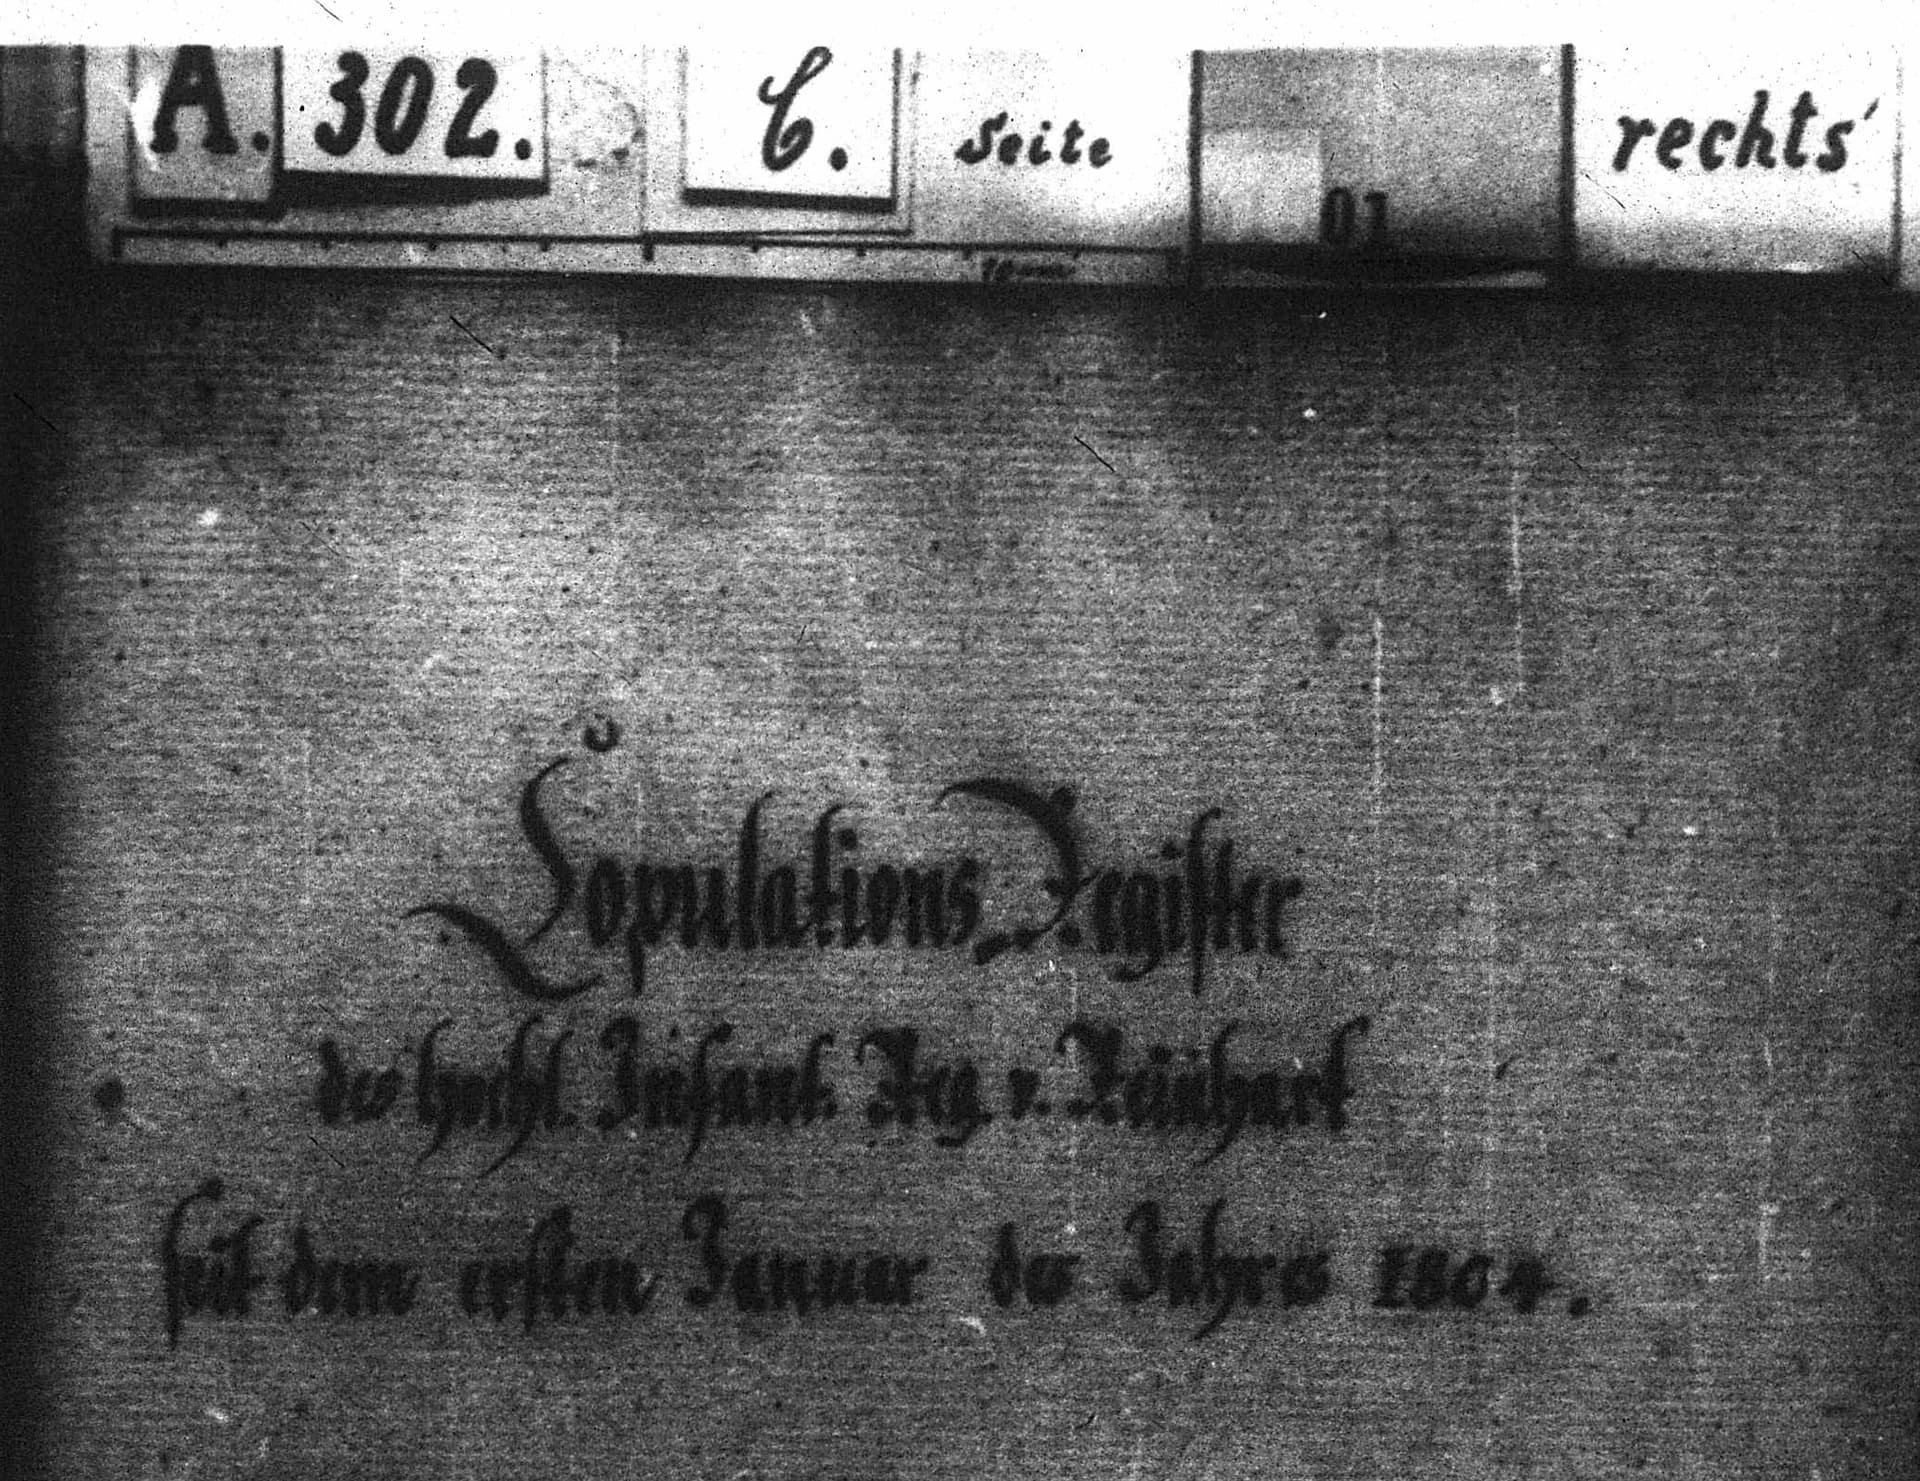 A. 302. C. Seite 01 rechts
Populations-Register
des hochl. Infant. Reg. v. Reinhart
seit dem ersten Januar des Jahres 1804.